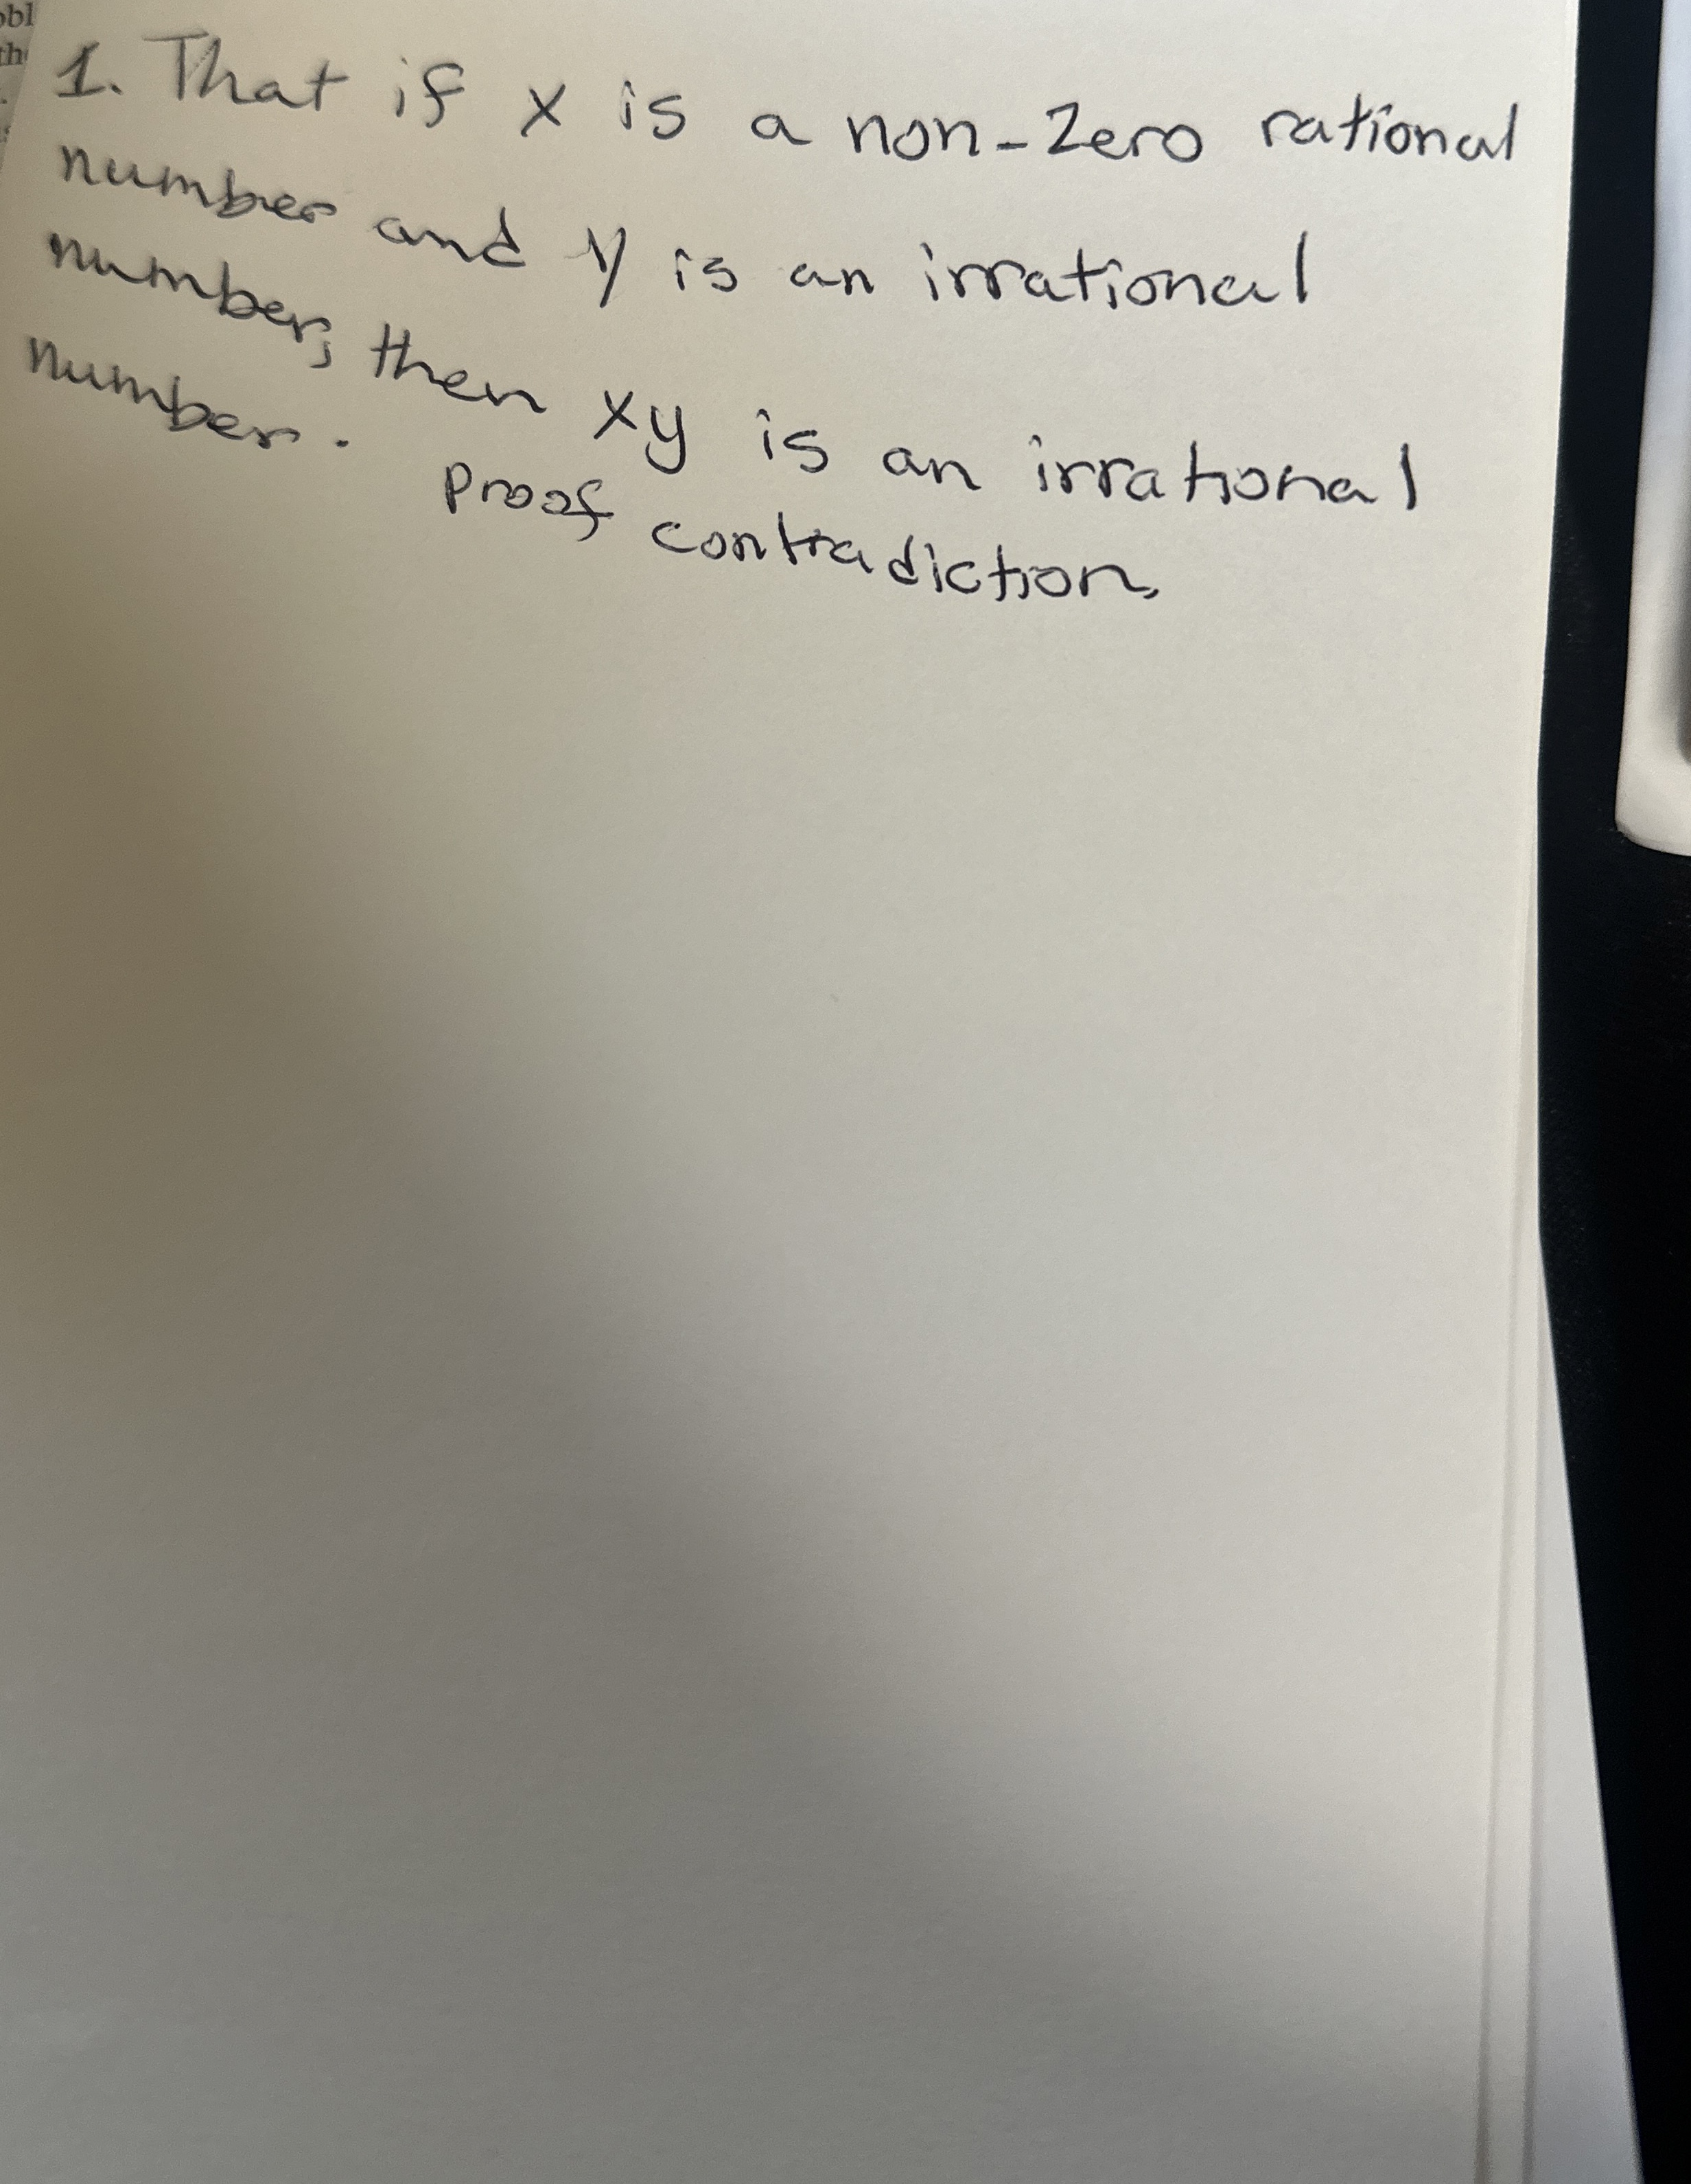 obl
the
1. That if x is a non-zero rational
number and y is an irrational
number, then xy is an irrational
number.
Proof contradiction.